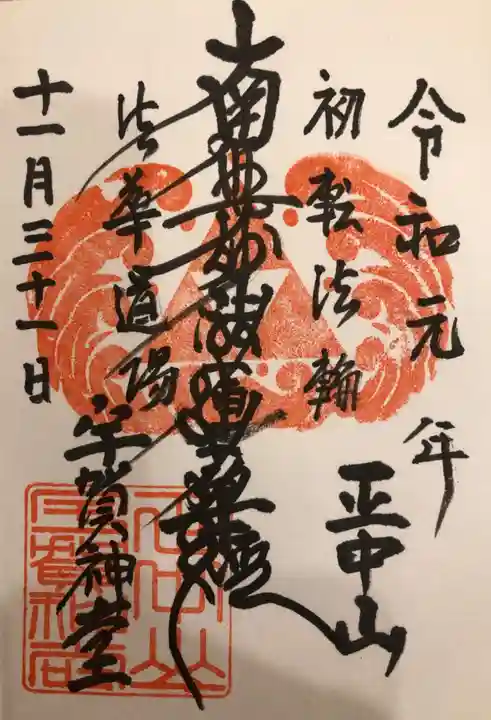 令和元年
初転法輪
正中山
南無妙法蓮華経
法華道場
宇賀神堂
十一月三十一日